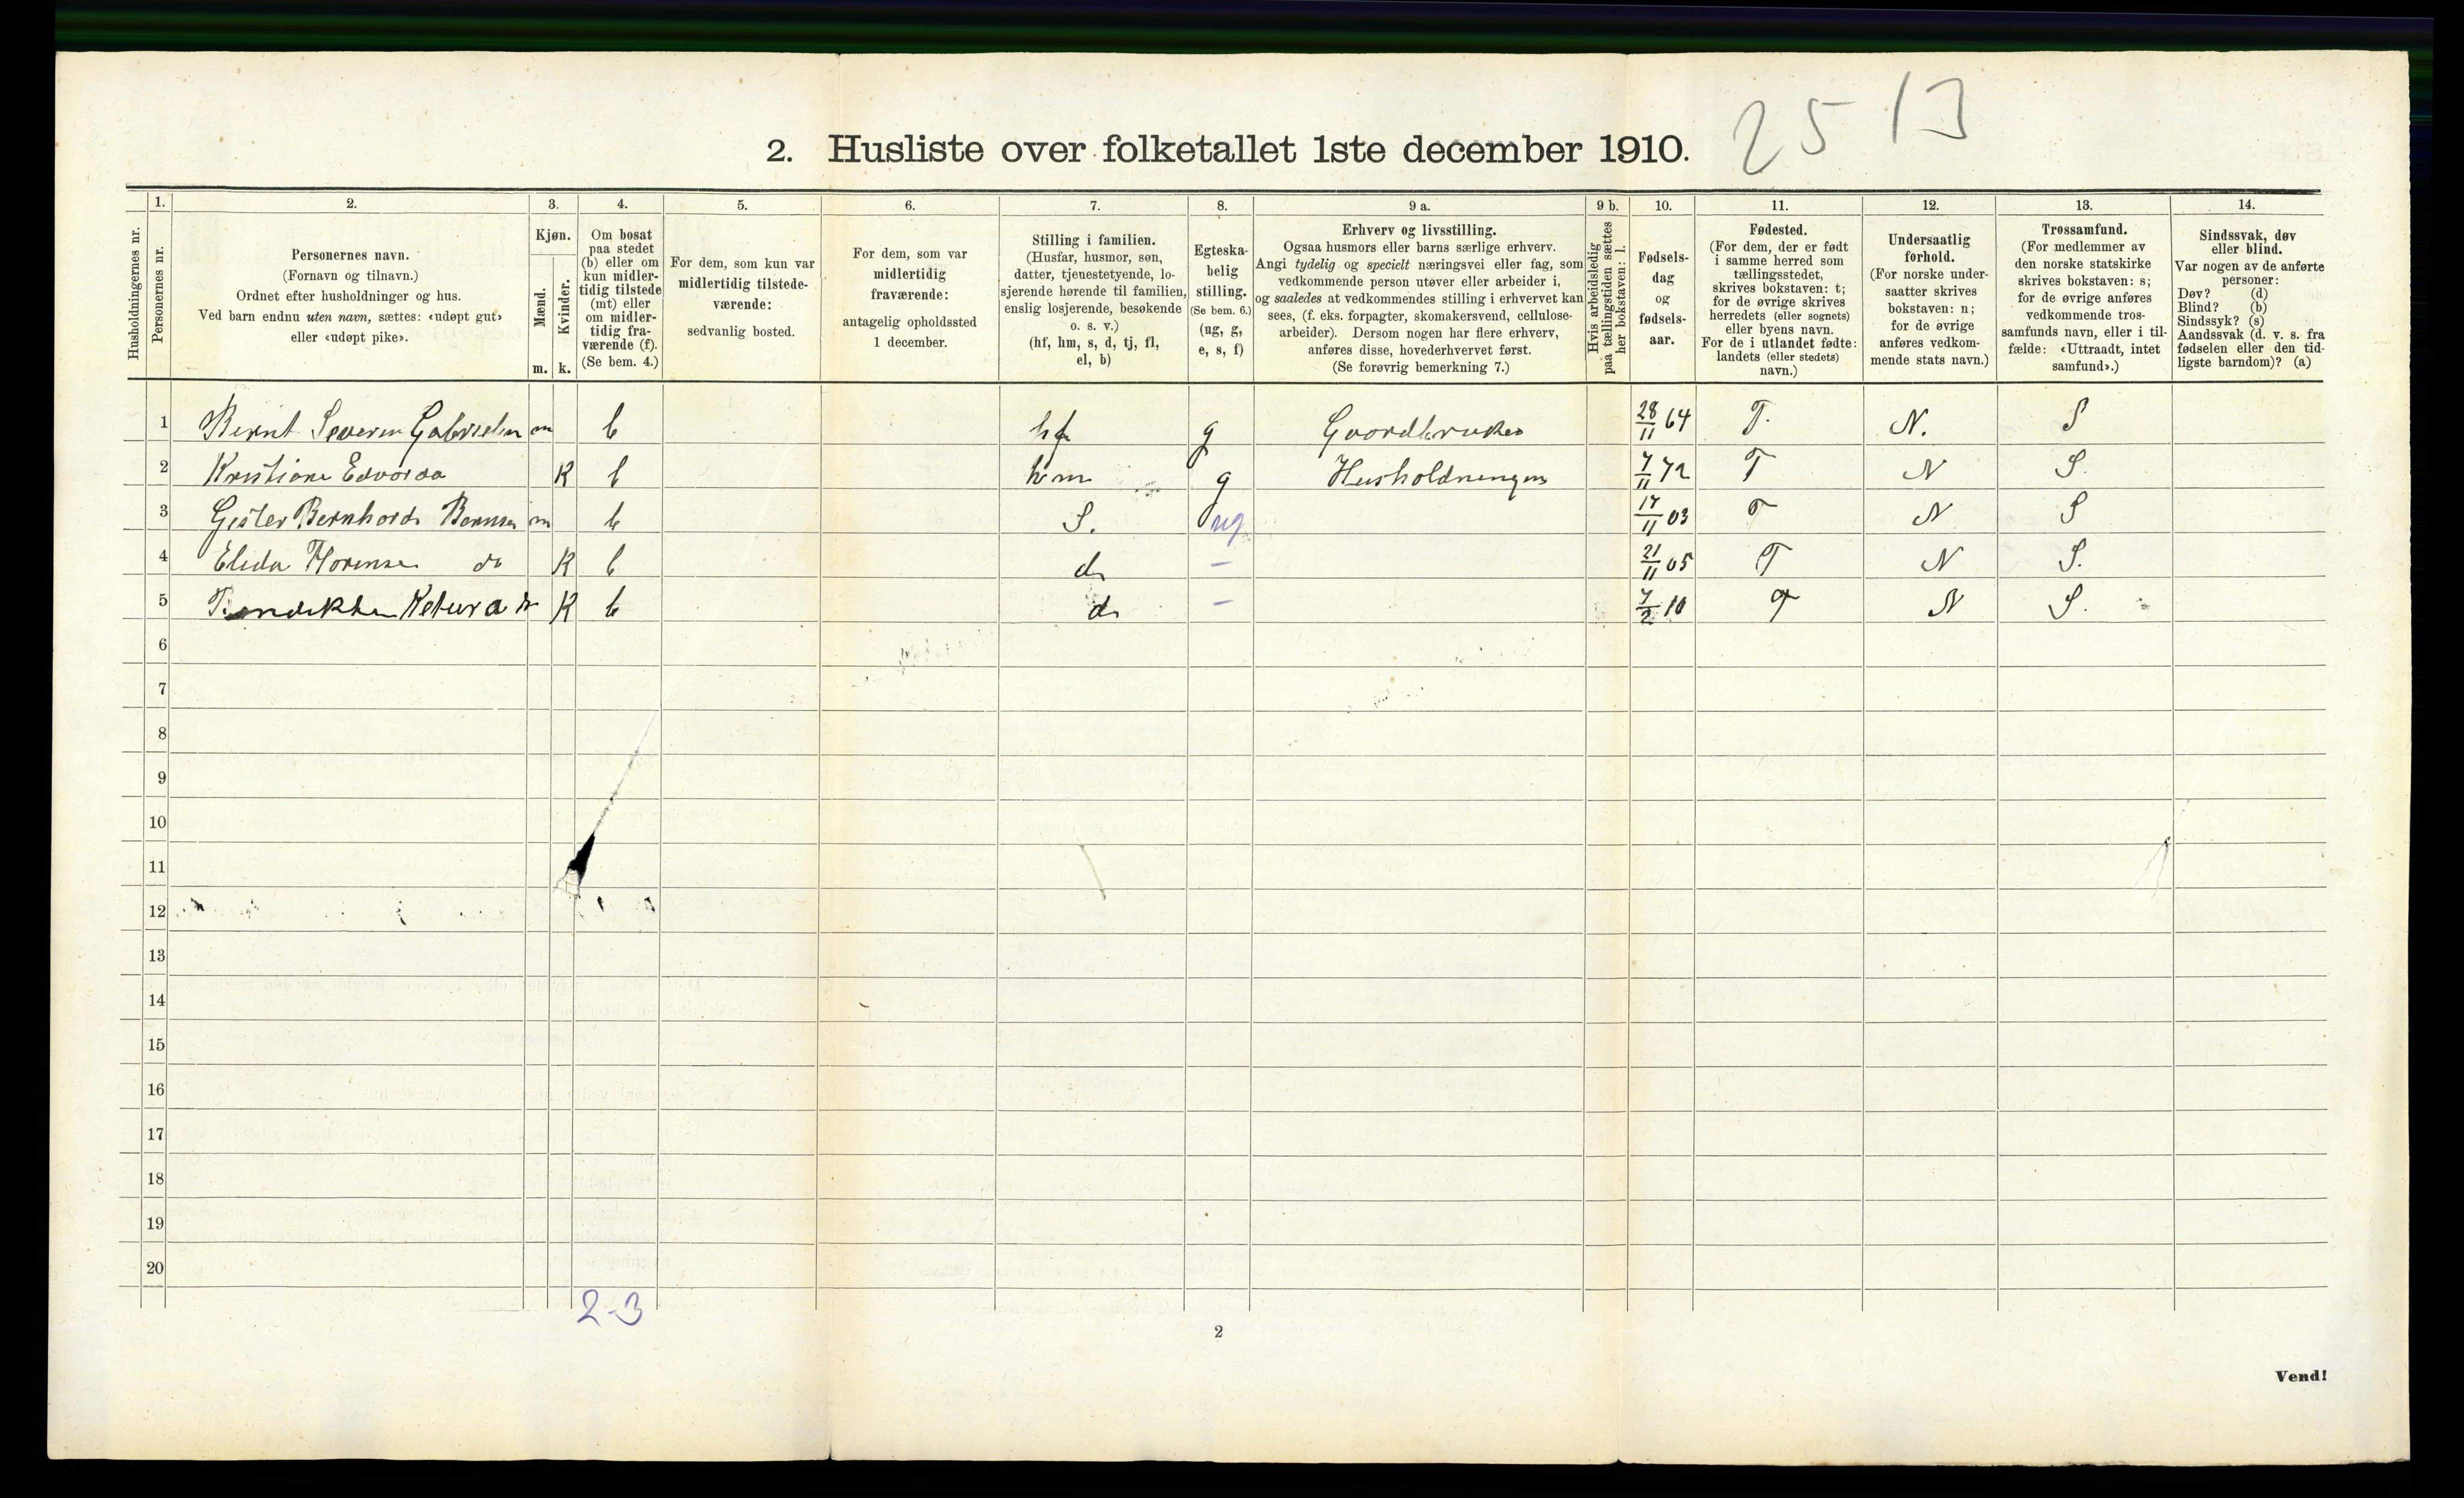 25 13
2. Husliste over folketallet 1ste december 1910.
Husholdningernes nr.
1.
Personernes nr.
2.
Personernes navn.
(Fornavn og tilnavn.)
Ordnet efter husholdninger og hus.
Ved barn endnu uten navn, sættes: «udøpt gut»
eller «udøpt pike».
3.
Kjøn.
Mænd.
m.
Kvinder.
k.
4.
Om bosat
paa stedet
(b) eller om
kun midler-
tidig tilstede
(mt) eller
om midler-
tidig fra-
værende (f).
(Se bem. 4.)
5.
For dem, som kun var
midlertidig tilstede-
værende:
sedvanlig bosted.
6.
For dem, som var
midlertidig
fraværende:
antagelig opholdssted
1 december.
7.
Stilling i familien.
(Husfar, husmor, søn,
datter, tjenestetyende, lo-
sjerende hørende til familien,
enslig losjerende, besøkende
o. s. v.)
(hf, hm, s, d, tj, fl,
el, b)
8.
Egteska-
belig
stilling.
(Se bem. 6.)
(ug, g,
e, s, f)
9 a.
Erhverv og livsstilling.
Ogsaa husmors eller barns særlige erhverv.
Angi tydelig og specielt næringsvei eller fag, som
vedkommende person utøver eller arbeider i,
og saaledes at vedkommendes stilling i erhvervet kan
sees, (f. eks. forpagter, skomakersvend, cellulose-
arbeider). Dersom nogen har flere erhverv,
anføres disse, hovederhvervet først.
(Se forøvrig bemerkning 7.)
9 b.
Hvis arbeidsledig
paa tællingstiden sættes
her bokstaven: l.
10.
Fødsels-
dag
og
fødsels-
aar.
11.
Fødested.
(For dem, der er født
i samme herred som
tællingsstedet,
skrives bokstaven: t;
for de øvrige skrives
herredets (eller sognets)
eller byens navn.
For de i utlandet fødte:
landets (eller stedets)
navn.)
12.
Undersaatlig
forhold.
(For norske under-
saatter skrives
bokstaven: n;
for de øvrige
anføres vedkom-
mende stats navn.)
13.
Trossamfund.
(For medlemmer av
den norske statskirke
skrives bokstaven: s;
for de øvrige anføres
vedkommende tros-
samfunds navn, eller i til-
fælde: «Uttraadt, intet
samfund».)
14.
Sindssvak, døv
eller blind.
Var nogen av de anførte
personer:
Døv? (d)
Blind? (b)
Sindssyk? (s)
Aandssvak (d. v. s. fra
fødselen eller den tid-
ligste barndom)? (a)
1 Bernt Severin Gabrielsen m b hf g Gaardbruker 28/11 64 T. N. S
2 Kristiane Edvarda K b hm g Husholdningen 7/11 72 T N S.
3 Bernhard m b S. ug 17/11 03 T N S
4 Elida do K b d – 21/11 05 T N S.
5 Ketura do K b d – 7/2 10 T N S.
6
7
8
9
10
11
12
13
14
15
16
17
18
19
20
2-3
2
Vend!